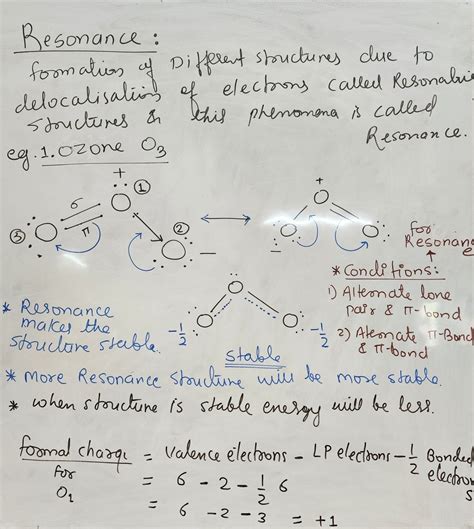 Resonance :
formation of Different structures due to
delocalisation of electrons called Resonating
structures & this phenomena is called
Resonance.
eg. 1. OZONE O3
+
σ
①
π
③
②
−
+
−
for
Resonance
* Conditions:
1) Alternate lone
pair & π-bond
2) Aternate π-Bond
& π-bond
* Resonance
makes the
structure stable.
-1/2
-1/2
stable
* more Resonance structure will be more stable.
* when structure is stable energy will be less.
formal charge = Valence electrons - LP electrons - 1/2 Bonded
electrons
For
O1
= 6 - 2 - 1/2 6
= 6 - 2 - 3 = +1